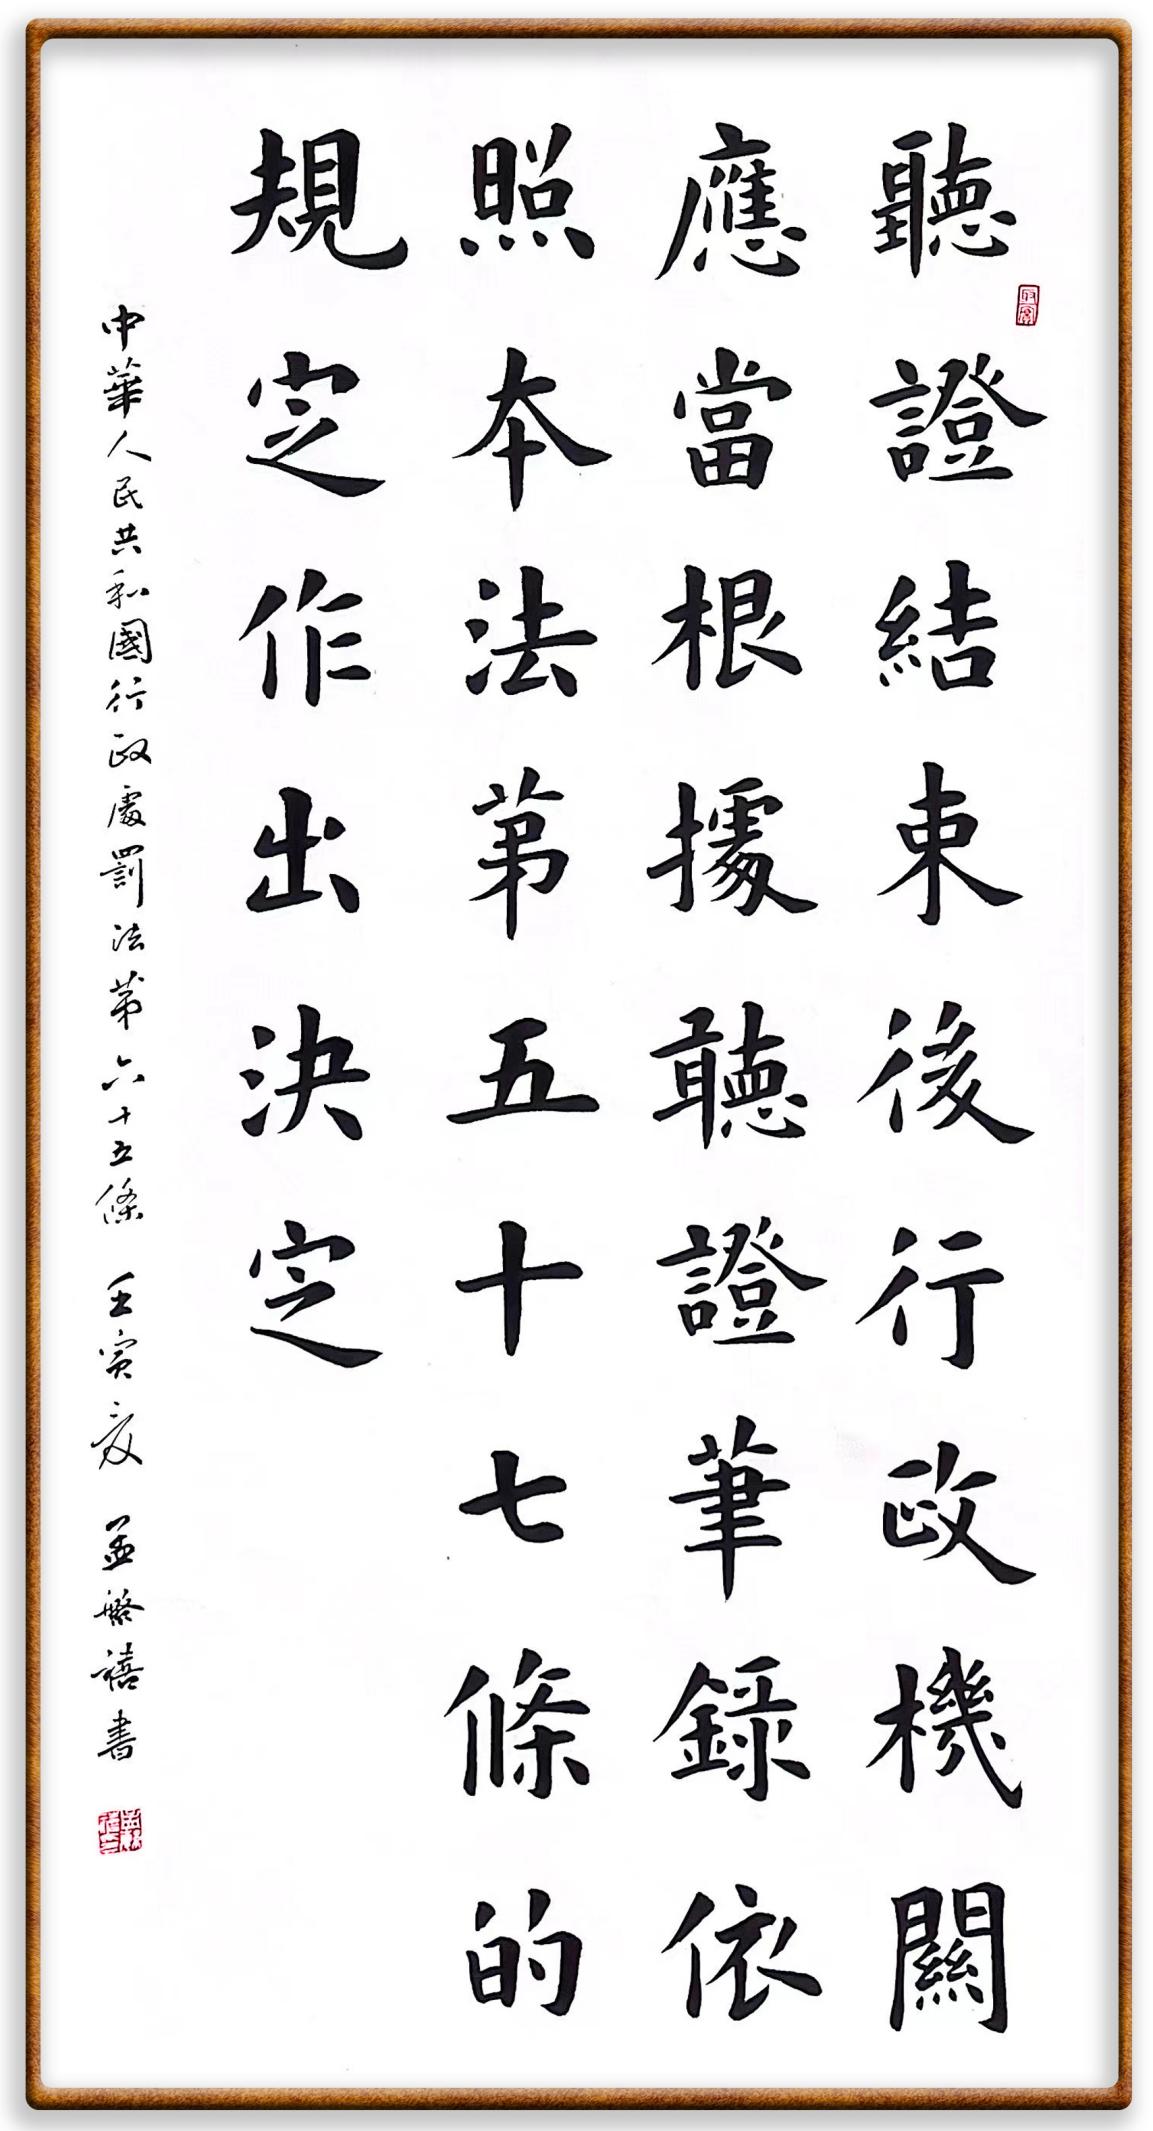 聽證結束後行政機關
應當根據聽證筆錄依
照本法第五十七條的
規定作出決定
中華人民共和國行政處罰法第六十五條 壬寅夏 孟繁禧書